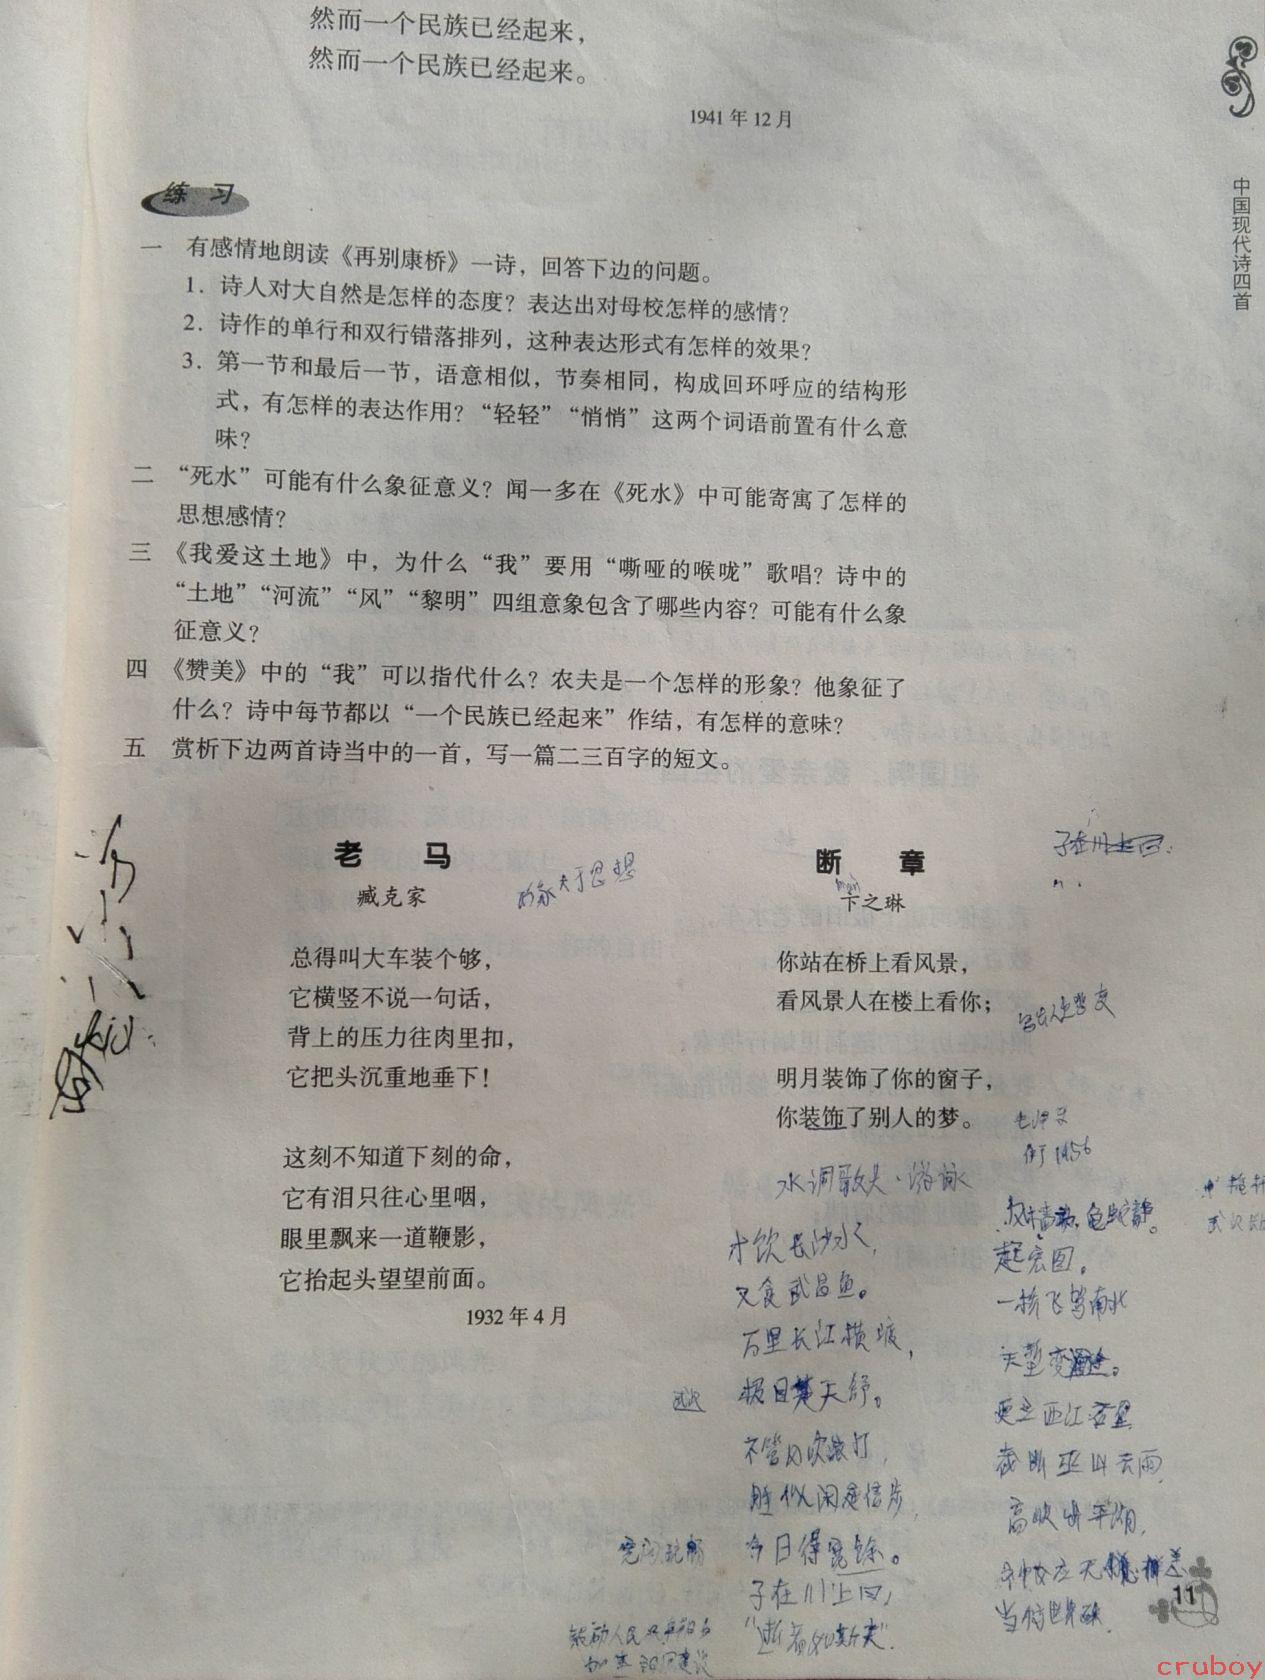 然而一个民族已经起来，
然而一个民族已经起来。
1941 年 12 月
中国现代诗四首
练 习
一 有感情地朗读《再别康桥》一诗，回答下边的问题。
1. 诗人对大自然是怎样的态度？表达出对母校怎样的感情？
2. 诗作的单行和双行错落排列，这种表达形式有怎样的效果？
3. 第一节和最后一节，语意相似，节奏相同，构成回环呼应的结构形
式，有怎样的表达作用？“轻轻”“悄悄”这两个词语前置有什么意
味？
二 “死水”可能有什么象征意义？闻一多在《死水》中可能寄寓了怎样的
思想感情？
三 《我爱这土地》中，为什么“我”要用“嘶哑的喉咙”歌唱？诗中的
“土地”“河流”“风”“黎明”四组意象包含了哪些内容？可能有什么象
征意义？
四 《赞美》中的“我”可以指代什么？农夫是一个怎样的形象？他象征了
什么？诗中每节都以“一个民族已经起来”作结，有怎样的意味？
五 赏析下边两首诗当中的一首，写一篇二三百字的短文。
老 马
臧克家
总得叫大车装个够，
它横竖不说一句话，
背上的压力往肉里扣，
它把头沉重地垂下！
这刻不知道下刻的命，
它有泪只往心里咽，
眼里飘来一道鞭影，
它抬起头望望前面。
1932 年 4 月
断 章
卞之琳
你站在桥上看风景，
看风景人在楼上看你；
明月装饰了你的窗子，
你装饰了别人的梦。
水调歌头·游泳
才饮长沙水，
又食武昌鱼。
万里长江横渡，
极目楚天舒。
不管风吹浪打，
胜似闲庭信步，
今日得宽馀。
子在川上曰，
“逝者如斯夫”.
龟蛇静。
起宏图。
一桥飞架南北
天堑变通途。
更立西江石壁
截断巫山云雨
高峡出平湖，
当惊世界殊
11
cruboy